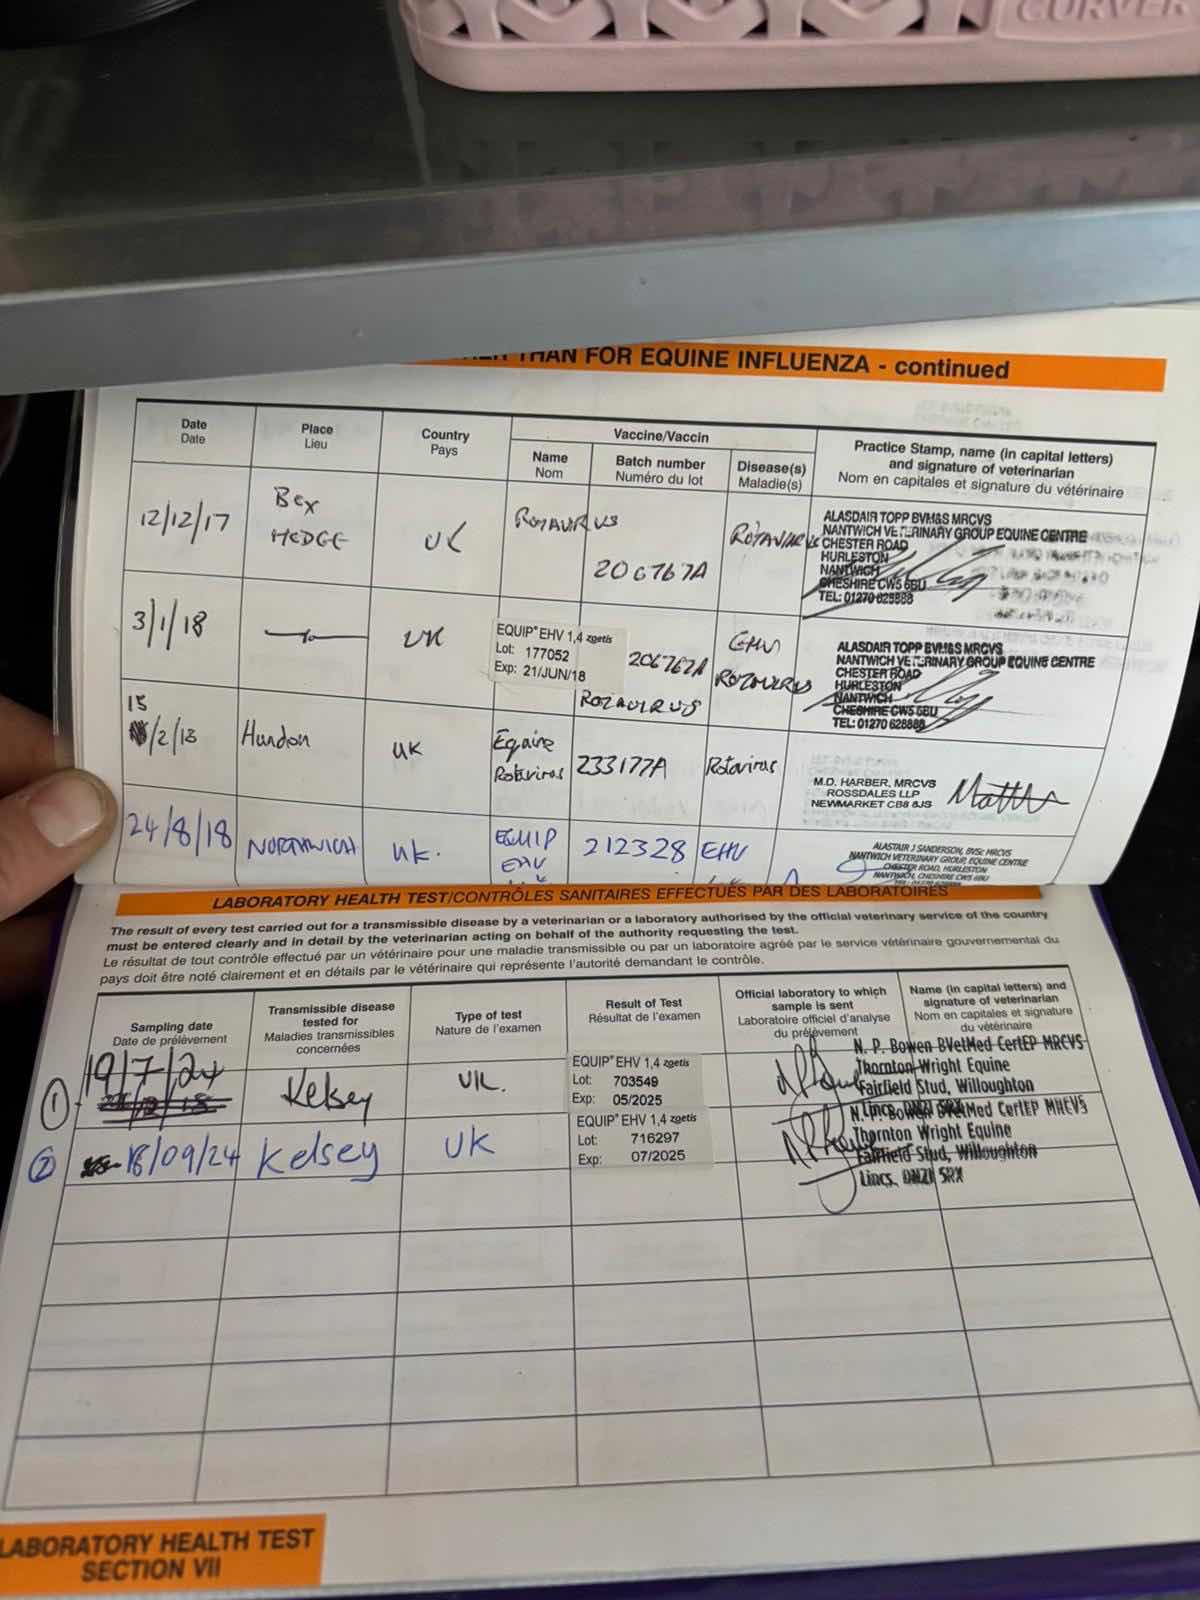 CURVER
THAN FOR EQUINE INFLUENZA - continued
Date
Date
Place
Lieu
Country
Pays
Vaccine/Vaccin
Name
Nom
Batch number
Numéro du lot
Disease(s)
Maladie(s)
Practice Stamp, name (in capital letters)
and signature of veterinarian
Nom en capitales et signature du vétérinaire
12/12/17
Bex
HEDGE
UK
ROTAVIRUS
206767A
ROTAVIRUS
ALASDAIR TOPP BVM&S MRCVS
NANTWICH VETERINARY GROUP EQUINE CENTRE
CHESTER ROAD
HURLESTON
NANTWICH
CHESHIRE CW5 6BU
TEL: 01270 628888
3/1/18
UK
EQUIP® EHV 1,4 zoetis
Lot: 177052
Exp: 21/JUN/18
206767A
ROTAVIRUS
EHV
ROTAVIRUS
ALASDAIR TOPP BVM&S MRCVS
NANTWICH VETERINARY GROUP EQUINE CENTRE
CHESTER ROAD
HURLESTON
NANTWICH
CHESHIRE CW5 6BU
TEL: 01270 628888
15
/2/18
Hundon
UK
Equine
Rotavirus
233177A
Rotavirus
M.D. HARBER, MRCVS
ROSSDALES LLP
NEWMARKET CB8 8JS
24/8/18
NORTHWICH
UK.
EQUIP
EHV
212328
EHV
ALASTAIR J SANDERSON, BVSc MRCVS
NANTWICH VETERINARY GROUP, EQUINE CENTRE
CHESTER ROAD, HURLESTON
NANTWICH, CHESHIRE CW5 6BU
LABORATORY HEALTH TEST/CONTRÔLES SANITAIRES EFFECTUÉS PAR DES LABORATOIRES
The result of every test carried out for a transmissible disease by a veterinarian or a laboratory authorised by the official veterinary service of the country
must be entered clearly and in detail by the veterinarian acting on behalf of the authority requesting the test.
Le résultat de tout contrôle effectué par un vétérinaire pour une maladie transmissible ou par un laboratoire agréé par le service vétérinaire gouvernemental du
pays doit être noté clairement et en détails par le vétérinaire qui représente l'autorité demandant le contrôle.
Sampling date
Date de prélèvement
Transmissible disease
tested for
Maladies transmissibles
concernées
Type of test
Nature de l'examen
Result of Test
Résultat de l'examen
Official laboratory to which
sample is sent
Laboratoire officiel d'analyse
du prélèvement
Name (in capital letters) and
signature of veterinarian
Nom en capitales et signature
du vétérinaire
1
19/7/24
Kelsey
UK.
EQUIP® EHV 1,4 zoetis
Lot: 703549
Exp: 05/2025
N. P. Bowen BVetMed CertEP MRCVS
Thornton Wright Equine
Fairfield Stud, Willoughton
Lincs. DN21 5RX
2
18/09/24
Kelsey
UK
EQUIP® EHV 1,4 zoetis
Lot: 716297
Exp: 07/2025
N. P. Bowen BVetMed CertEP MRCVS
Thornton Wright Equine
Fairfield Stud, Willoughton
Lincs. DN21 5RX
LABORATORY HEALTH TEST
SECTION VII